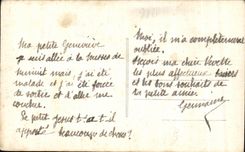 Ma petite Germaine
je suis allée à la messe de
minuit mais j'ai été
malade et j'ai été forcée
de sortir et d'aller me
coucher.
Le petit Jésus t'a-t-il
apporté beaucoup de choses ?
Moi, il m'a complètement
oubliée.
Reçois ma chère
les plus affectueux baisers
et les bons souhaits de
ta petite amie.
Germaine